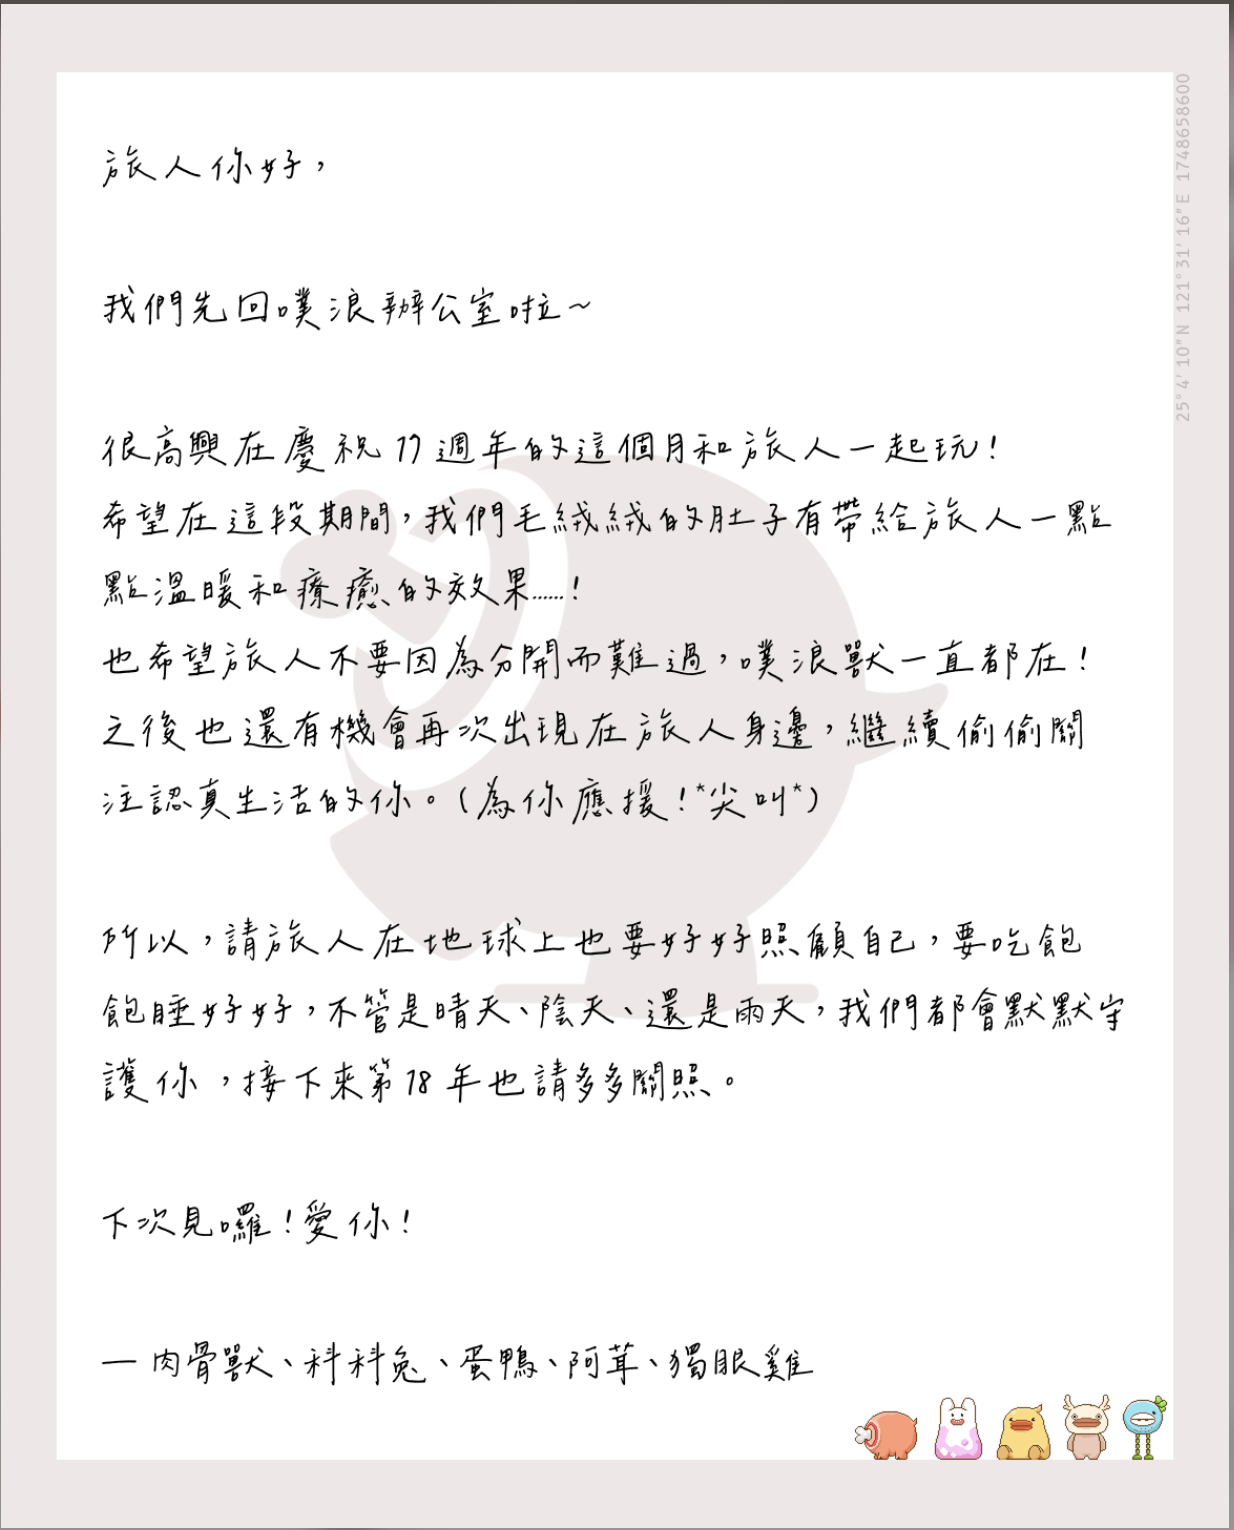 旅人你好，
我們先回噗浪辦公室啦～
很高興在慶祝17週年的這個月和旅人一起玩！
希望在這段期間，我們毛絨絨的肚子有帶給旅人一點
點溫暖和療癒的效果......！
也希望旅人不要因為分開而難過，噗浪獸一直都在！
之後也還有機會再次出現在旅人身邊，繼續偷偷關
注認真生活的你。（為你應援！*尖叫*）
所以，請旅人在地球上也要好好照顧自己，要吃飽
飽睡好好，不管是晴天、陰天、還是雨天，我們都會默默守
護你，接下來第18年也請多多關照。
下次見囉！愛你！
— 肉骨獸、科科兔、蛋鴨、阿茸、獨眼雞
25°4'10"N 121°31'16"E 1748658600